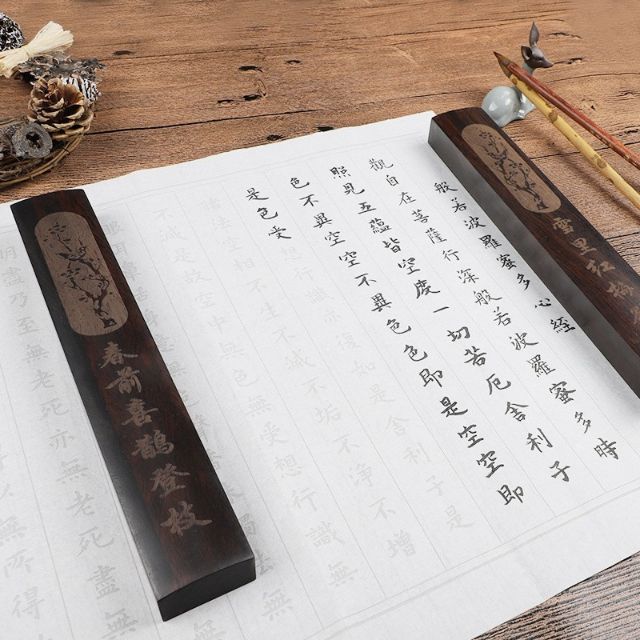 雪里紅梅
般若波羅蜜多心經
觀自在菩薩行深般若波羅蜜多時
照見五蘊皆空度一切苦厄舍利子
色不異空空不異色色即是空空即
是色受想行識亦復如是舍利子是
諸法空相不生不滅不垢不淨不增
不減是故空中無色無受想行識無
春前喜鵲登枝
明盡乃至無老死亦無老死盡無
所得